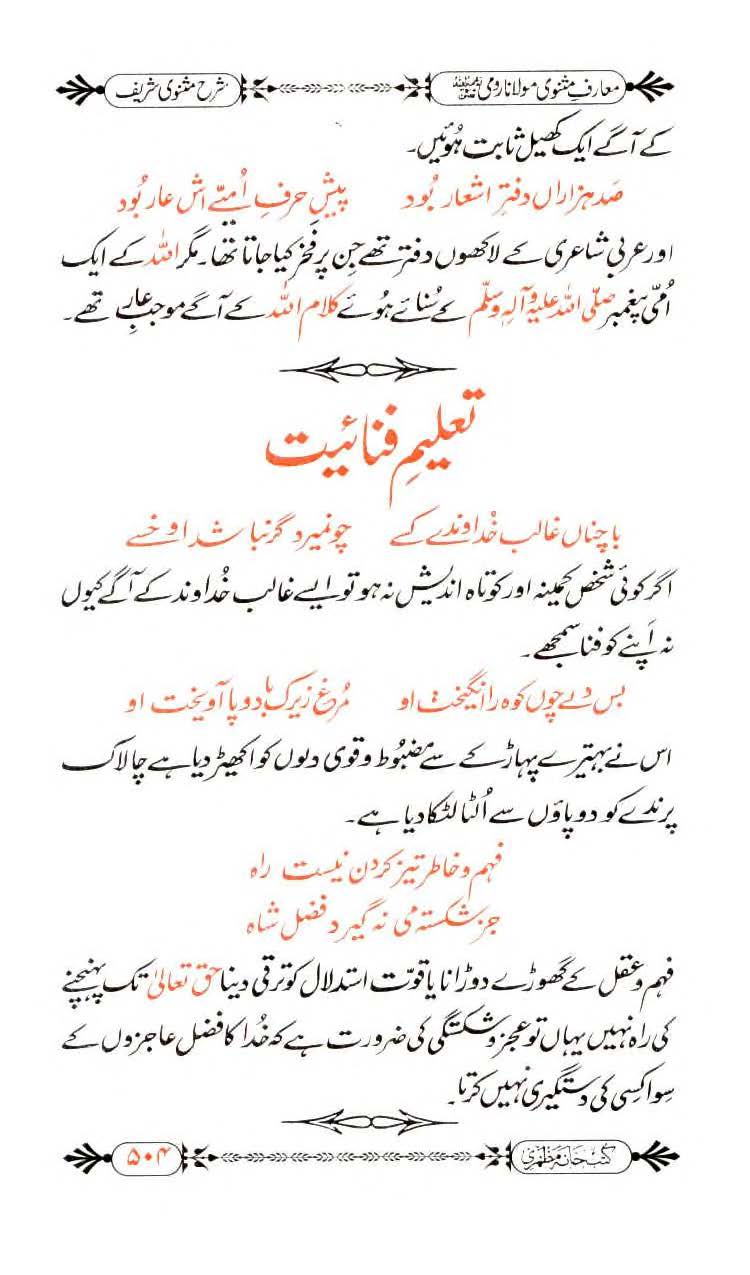 معارفِ مثنوی مولانا رومی رحمۃاللہ علیہ
شرح مثنوی شریف
کے آگے ایک کھیل ثابت ہُوئیں۔
صَد ہزاراں دفترِ اشعار بُود پیشِ حرفِ اُمیے اش عار بُود
اور عربی شاعری کے لاکھوں دفتر تھے جن پر فخر کیا جاتا تھا۔ مگر اللہ کے ایک
اُمّی پیغمبر صلّی اللہ علیہ وآلہٖ وسلّم کے سُنائے ہُوئے کلام اللہ کے آگے موجبِ عار تھے۔
تعلیمِ فنائیت
باچناں غالب خُداوندے کسے چونمیرد گر نباشد او خسے
اگر کوئی شخص کمینہ اور کوتاہ اندیش نہ ہو تو ایسے غالب خُداوند کے آگے کیوں
نہ اَپنے کو فنا سمجھے۔
بس دلے چوں کوہ را انگیخت او مُرغِ زیرک با دو پا آویخت او
اس نے بہتیرے پہاڑ کے سے مضبُوط و قوی دلوں کو اکھیڑ دیا ہے چالاک
پرندے کو دو پاؤں سے اُلٹا لٹکا دیا ہے۔
فہم و خاطر تیز کردن نیست راہ
جز شکستہ می نہ گیرد فضل شاہ
فہم و عقل کے گھوڑے دوڑانا یا قوّت استدلال کو ترقی دینا حق تعالیٰ تک پہنچنے
کی راہ نہیں یہاں تو عجز و شکستگی کی ضرورت ہے کہ خُدا کا فضل عاجزوں کے
سِوا کسِی کی دستگیری نہیں کرتا۔
کتب خانہ مظہری
۵۰۴